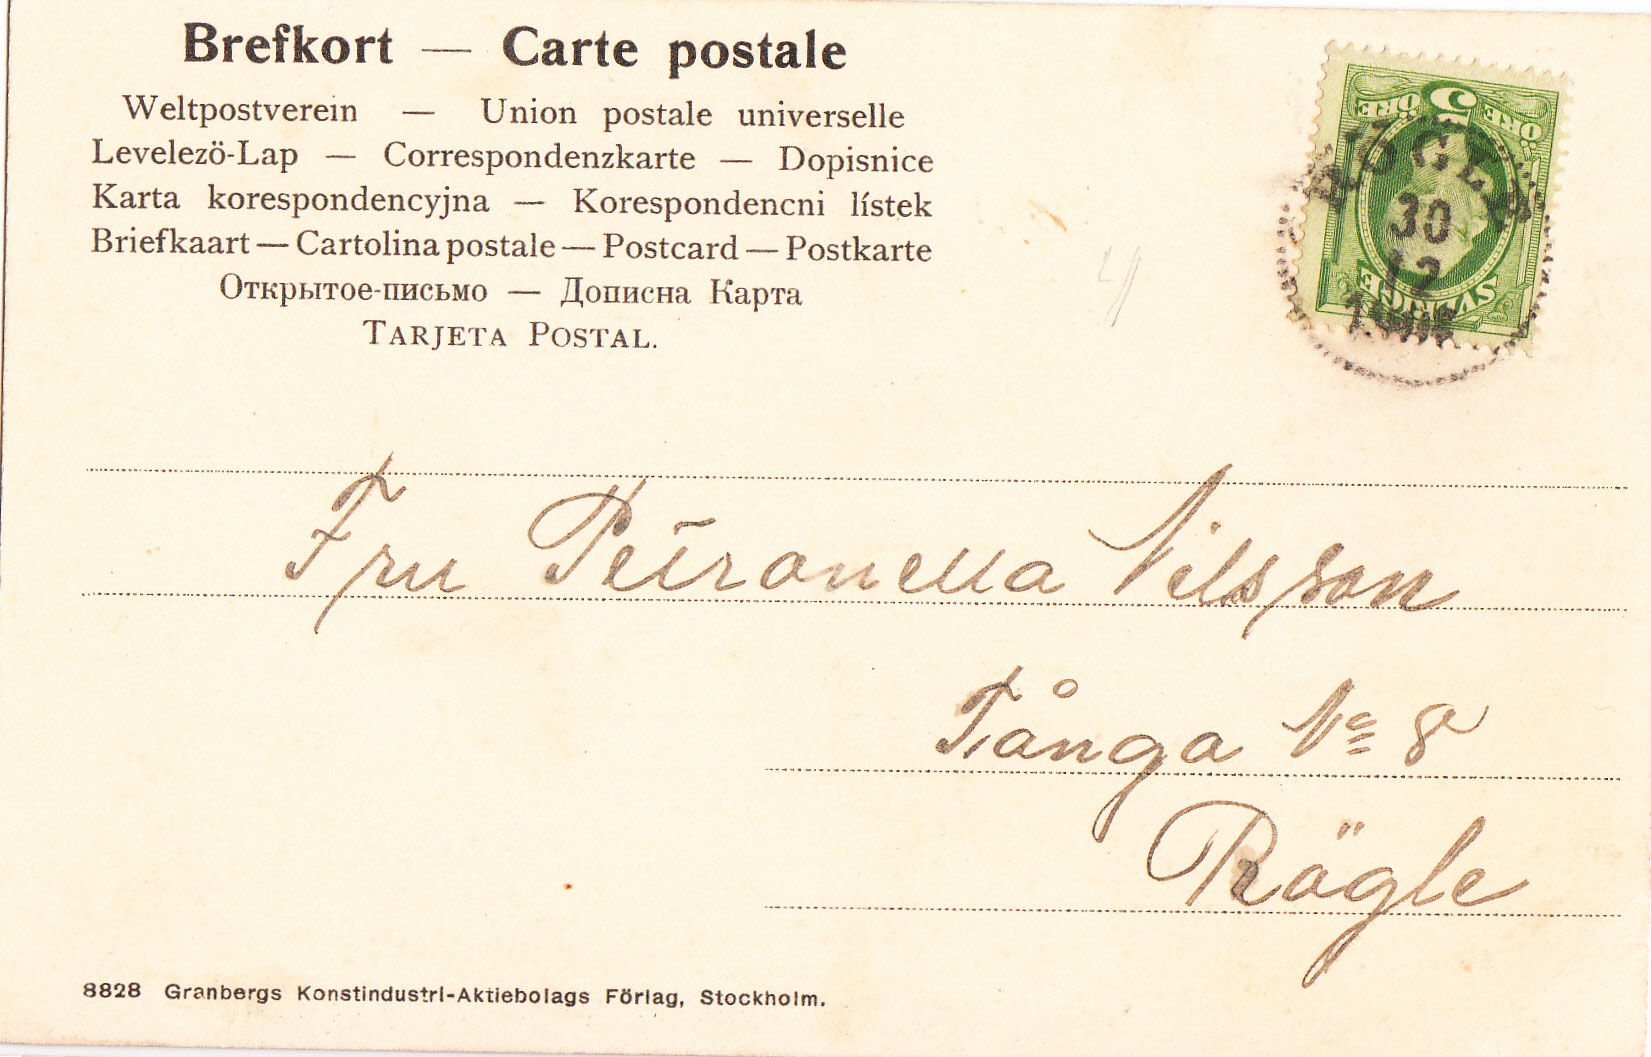 Brefkort — Carte postale
Weltpostverein — Union postale universelle
Levelezö-Lap — Correspondenzkarte — Dopisnice
Karta korespondencyjna — Korespondencni lístek
Briefkaart — Cartolina postale — Postcard — Postkarte
Открытое-письмо — Дописна Карта
TARJETA POSTAL.
5
ÖRE ÖRE
SVERIGE
30
12
Fru Petronella Nilsson
Tånga No 8
Rögle
8828 Granbergs Konstindustri-Aktiebolags Förlag, Stockholm.